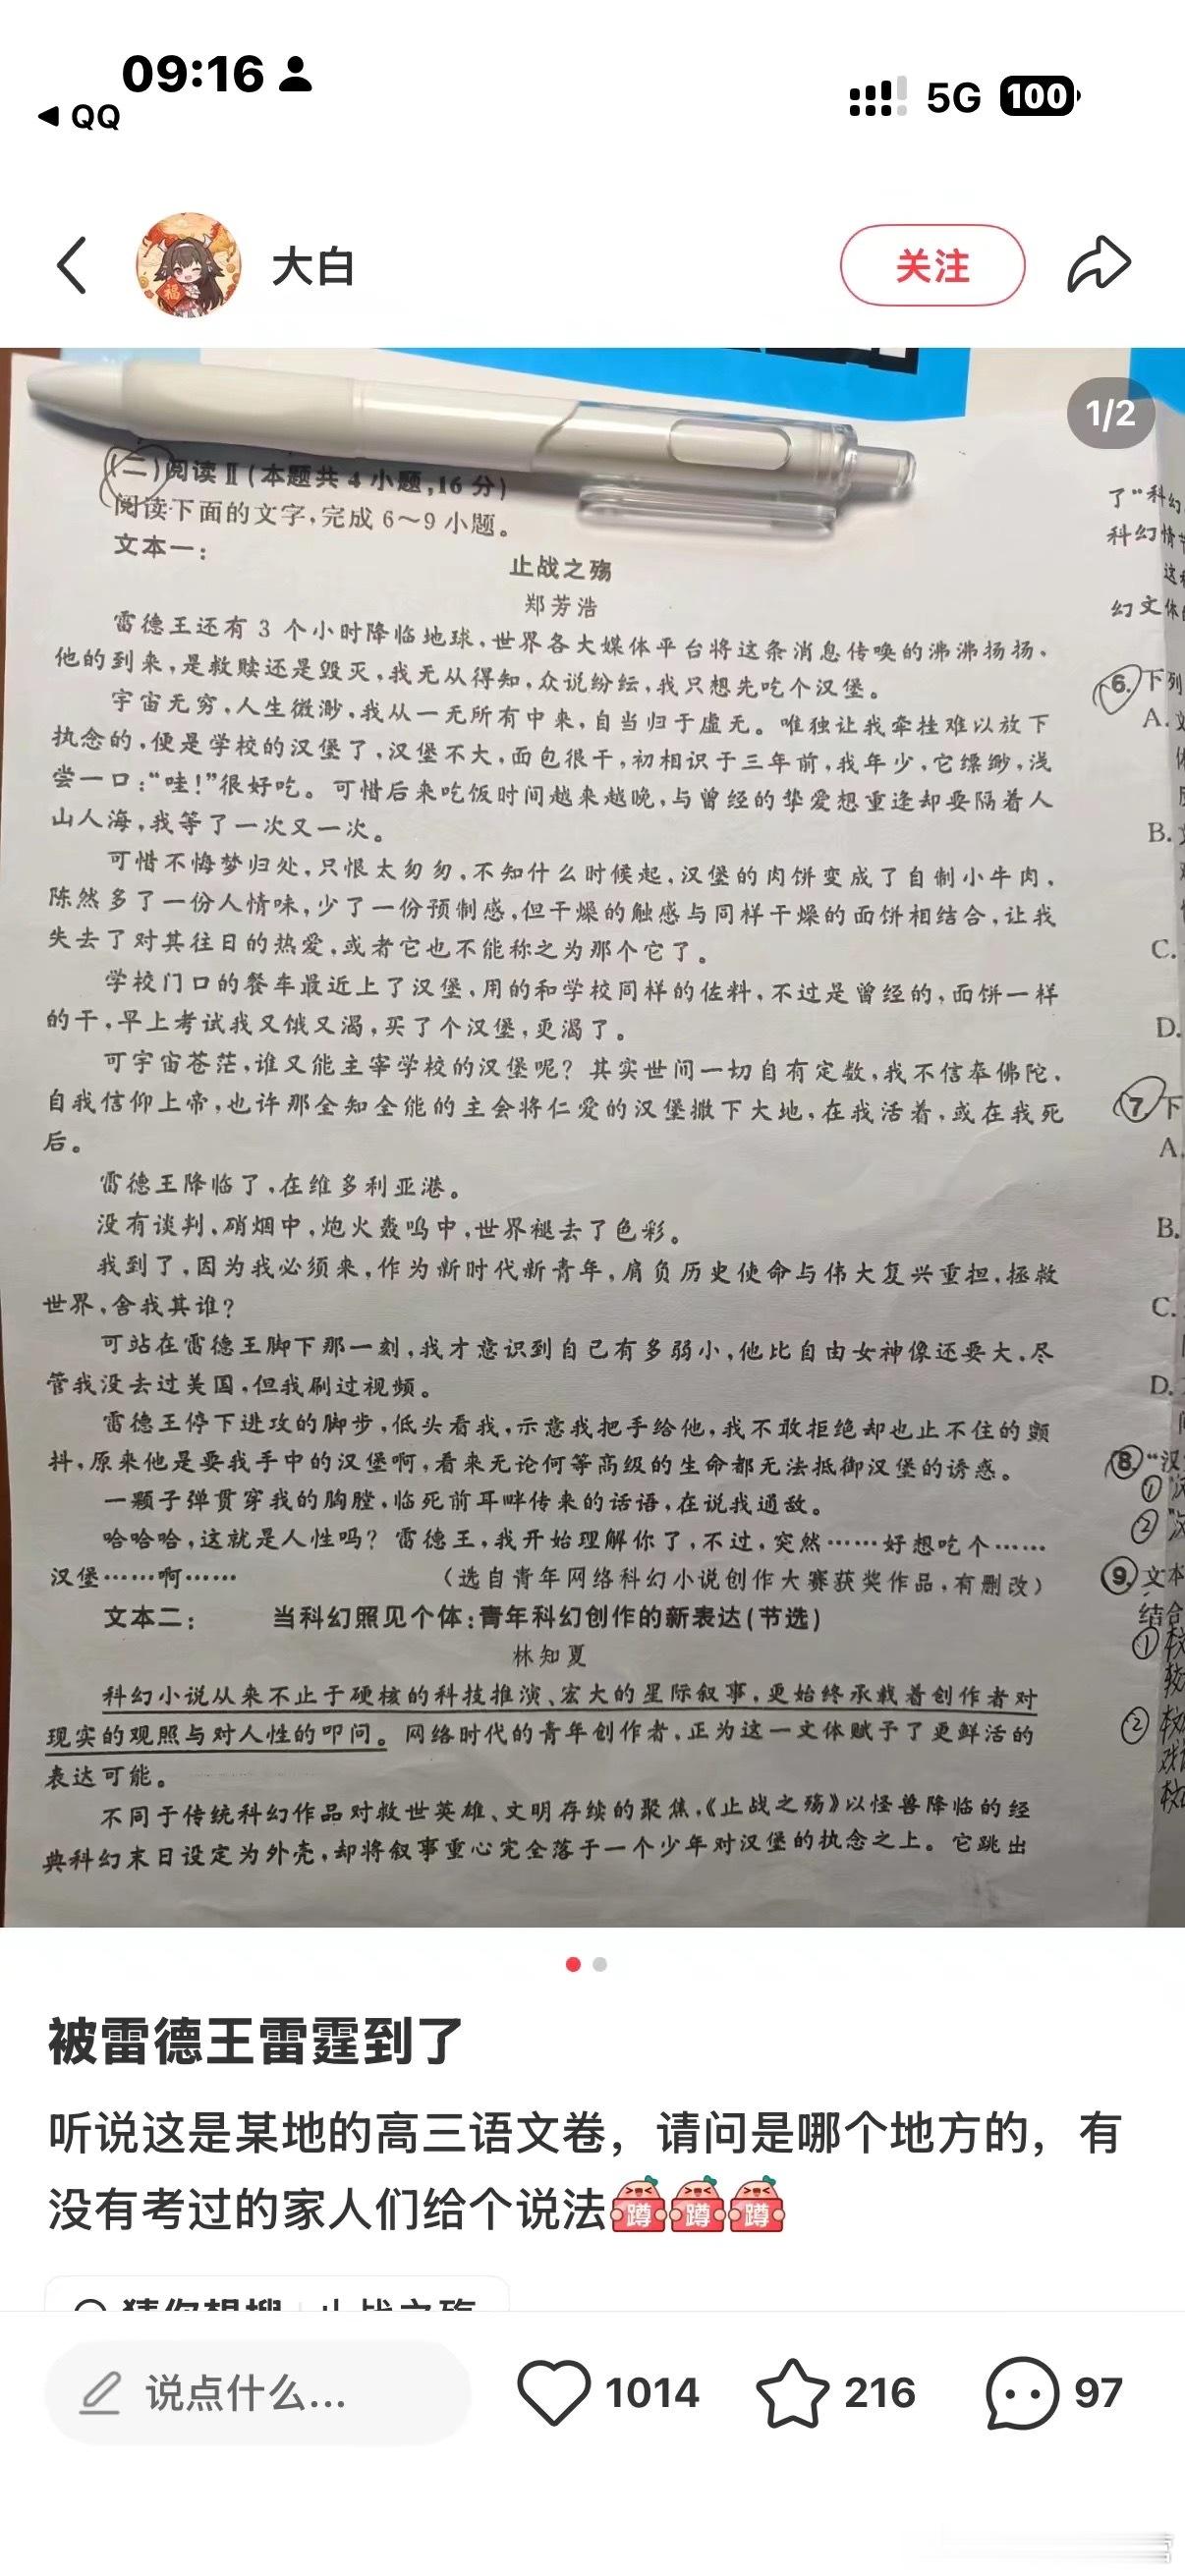 09:16
QQ
5G
100
大白
关注
1/2
(二)阅读Ⅱ(本题共4小题,16分)
阅读下面的文字,完成6～9小题。
文本一:
止战之殇
郑芳浩
雷德王还有3个小时降临地球,世界各大媒体平台将这条消息传唤的沸沸扬扬,
他的到来,是救赎还是毁灭,我无从得知,众说纷纭,我只想先吃个汉堡。
宇宙无穷,人生微渺,我从一无所有中来,自当归于虚无。唯独让我牵挂难以放下
执念的,便是学校的汉堡了,汉堡不大,面包很干,初相识于三年前,我年少,它缥缈,浅
尝一口:“哇!”很好吃。可惜后来吃饭时间越来越晚,与曾经的挚爱想重逢却要隔着人
山人海,我等了一次又一次。
可惜不悔梦归处,只恨太匆匆,不知什么时候起,汉堡的肉饼变成了自制小牛肉,
陈然多了一份人情味,少了一份预制感,但干燥的触感与同样干燥的面饼相结合,让我
失去了对其往日的热爱,或者它也不能称之为那个它了。
学校门口的餐车最近上了汉堡,用的和学校同样的佐料,不过是曾经的,面饼一样
的干,早上考试我又饿又渴,买了个汉堡,更渴了。
可宇宙苍茫,谁又能主宰学校的汉堡呢?其实世间一切自有定数,我不信奉佛陀,
自我信仰上帝,也许那全知全能的主会将仁爱的汉堡撒下大地,在我活着,或在我死
后。
雷德王降临了,在维多利亚港。
没有谈判,硝烟中,炮火轰鸣中,世界褪去了色彩。
我到了,因为我必须来,作为新时代新青年,肩负历史使命与伟大复兴重担,拯救
世界,舍我其谁?
可站在雷德王脚下那一刻,我才意识到自己有多弱小,他比自由女神像还要大,尽
管我没去过美国,但我刷过视频。
雷德王停下进攻的脚步,低头看我,示意我把手给他,我不敢拒绝却也止不住的颤
抖,原来他是要我手中的汉堡啊,看来无论何等高级的生命都无法抵御汉堡的诱惑。
一颗子弹贯穿我的胸膛,临死前耳畔传来的话语,在说我通敌。
哈哈哈,这就是人性吗?雷德王,我开始理解你了,不过,突然……好想吃个……
汉堡……啊……
(选自青年网络科幻小说创作大赛获奖作品,有删改)
文本二:
当科幻照见个体:青年科幻创作的新表达(节选)
林知夏
科幻小说从来不止于硬核的科技推演、宏大的星际叙事,更始终承载着创作者对
现实的观照与对人性的叩问。网络时代的青年创作者,正为这一文体赋予了更鲜活的
表达可能。
不同于传统科幻作品对救世英雄、文明存续的聚焦,《止战之殇》以怪兽降临的经
典科幻末日设定为外壳,却将叙事重心完全落于一个少年对汉堡的执念之上。它跳出
了“科幻
科幻情
这
幻文体
6.下列
A.
B.
C.
D.
7.下
A.
B.
C.
D.
8.“汉
①
②
9.文本
结合
①
②
被雷德王雷霆到了
听说这是某地的高三语文卷，请问是哪个地方的，有
没有考过的家人们给个说法
蹲蹲蹲
猜你想搜 | 止战之殇
说点什么...
1014
216
97